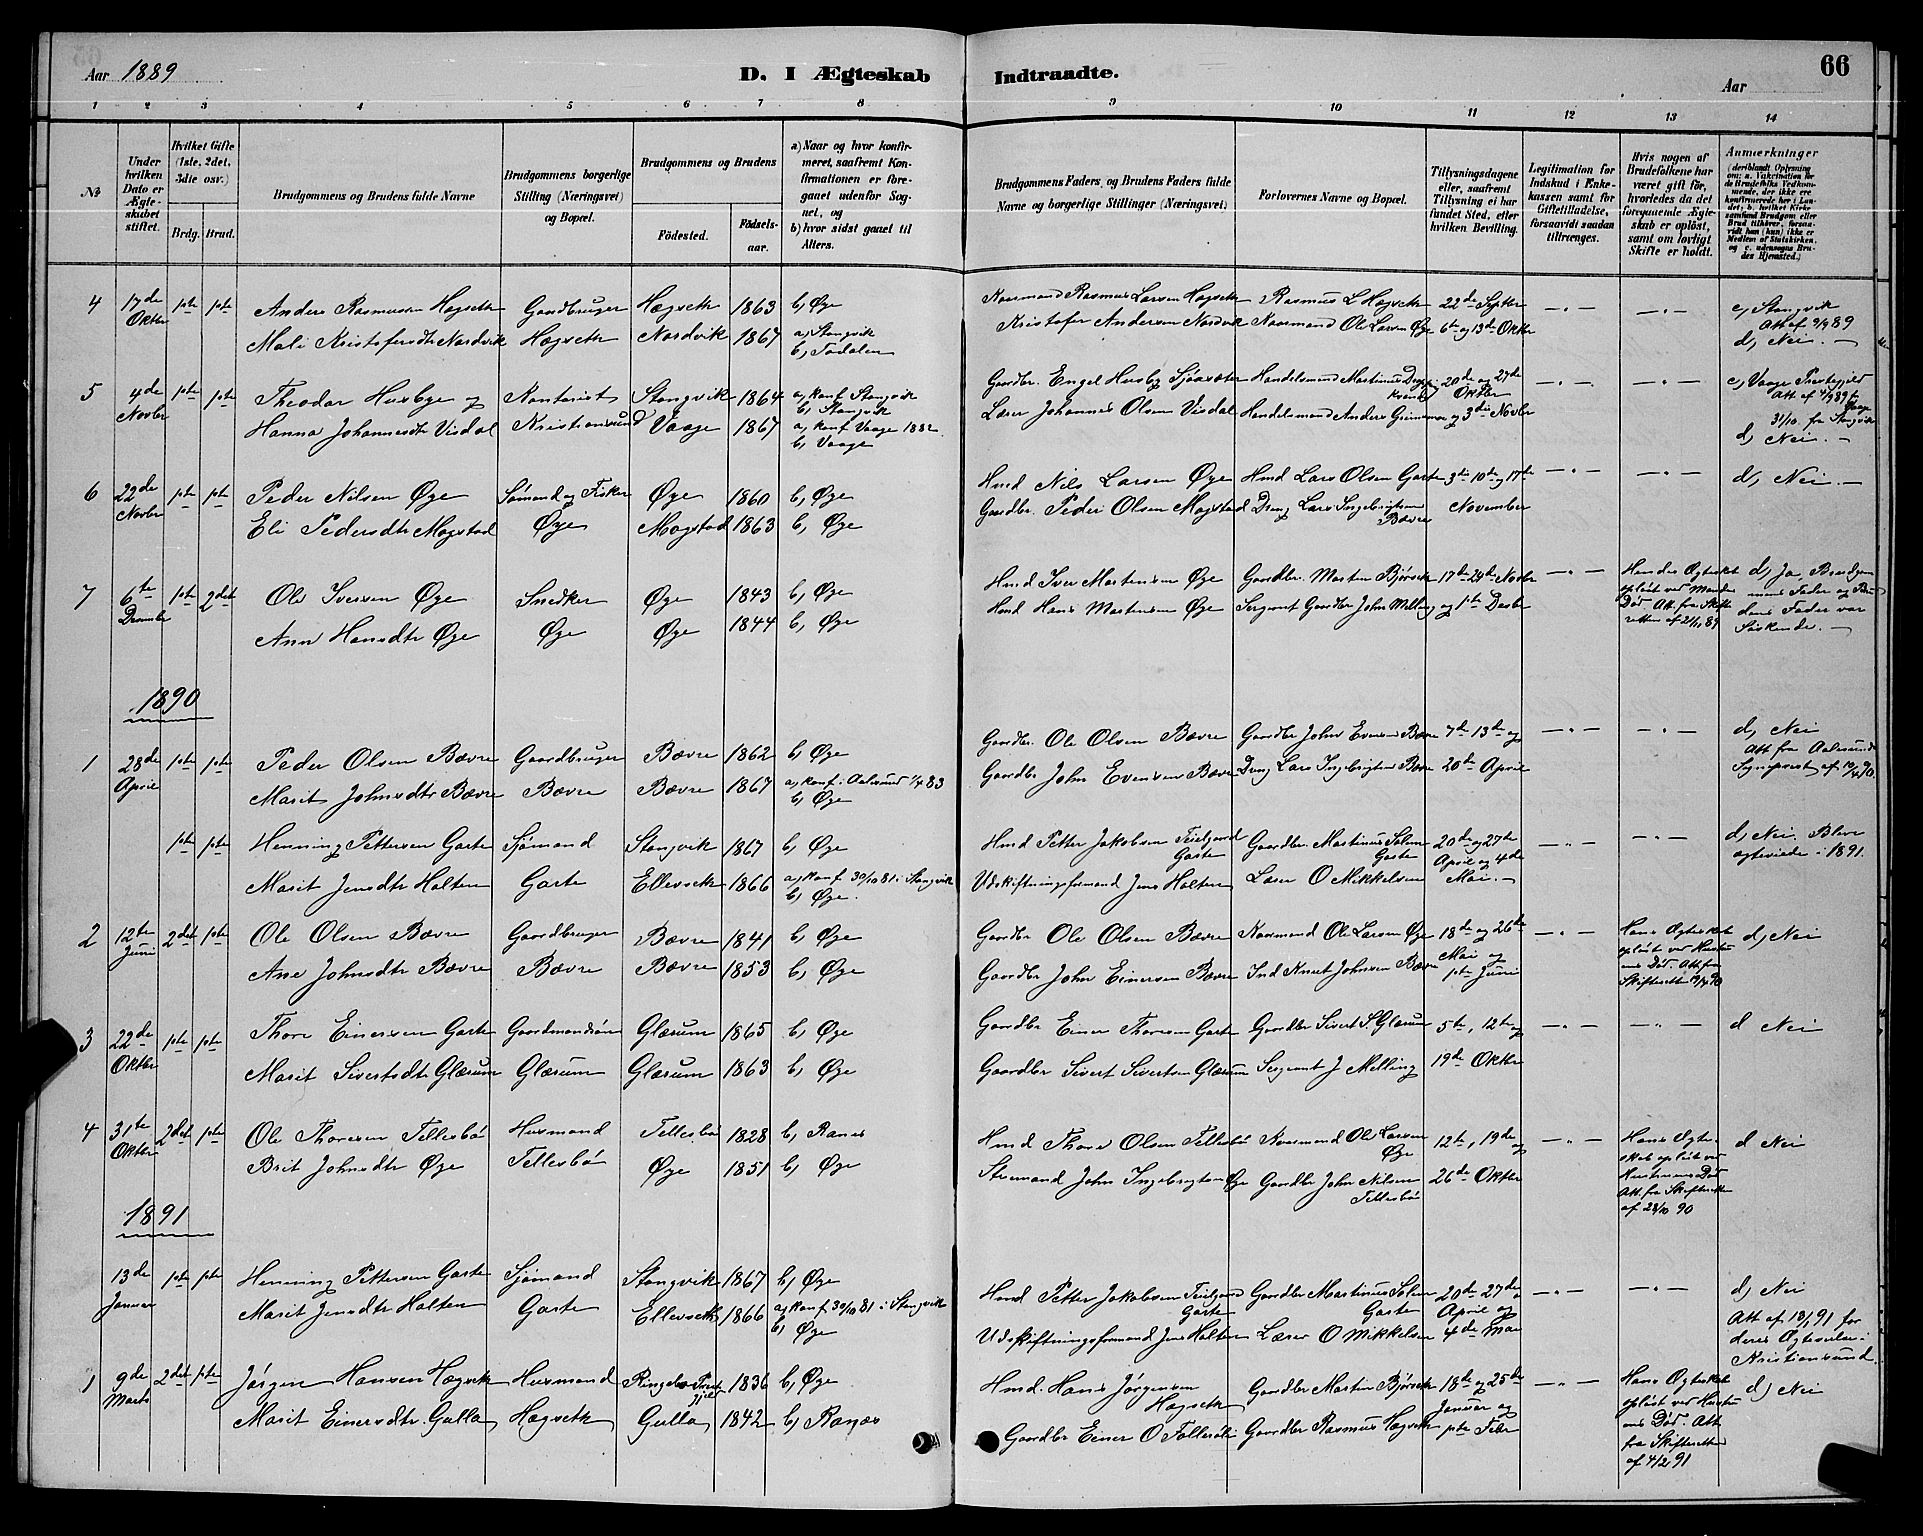 Aar 1889
D. I Ægteskab Indtraadte.
Aar
66
1 2 3 4 5 6 7 8 9 10 11 12 13 14
№
Under hvilken Dato er Ægteskabet stiftet.
Hvilket Gifte (1ste, 2det, 3die osv.)
Brdg. Brud.
Brudgommens og Brudens fulde Navne
Brudgommens borgerlige Stilling (Næringsvei) og Bopæl.
Brudgommens og Brudens
Fødested.
Fødselsaar.
a) Naar og hvor konfirmeret, saafremt Konfirmationen er foregaaet udenfor Sognet, og
b) hvor sidst gaaet til Alters.
Brudgommens Faders og Brudens Faders fulde Navne og borgerlige Stillinger (Næringsvei)
Forlovernes Navne og Bopæl.
Tillysningsdagene eller, saafremt Tillysning ei har fundet Sted, efter hvilken Bevilling.
Legitimation for Indskud i Enkekassen samt for Giftetilladelse, forsaavidt saadan tiltrænges.
Hvis nogen af Brudefolkene har været gift før, hvorledes da det foregaaende Ægteskab er opløst, samt om lovligt Skifte er holdt.
Anmærkninger
4 17de Oktbr 1ste 1ste Anders Rasmussen Hægseth Gaardbruger Hægseth 1863 b, Øye Kaarmand Rasmus Larsen Hægseth Rasmus L Hægseth 22de Septbr — " — — " — c, Stangvik
Att af 9/9 89
Mali Kristofersdtr Nordvik Hægseth Nordvik 1867 a, Stangvik Kristofer Andersen Nordvik Kaarmand Ole Larsen Øye 6te og 13de Oktbr d, Nei. —
b, Todalen
5 4de Novbr 1ste 1ste Theodor Husbye og Kontorist Stangvik 1864 a, konf Stangvik Gaardbr. Engel Husby Sjøasæter Handelsmand Martinus 20de og 27de Oktbr — " — — " — c, Vaage Prestegjeld
b, Stangvik Att af 4/9 89 fr Vaage
Hanna Johannesdtr Visdal Kristiansund Vaage 1867 a, konf Vaage 1882 Lærer Johannes Olsen Visdal Handelsmand Anders og 3die Novbr 31/10 fra Stangvik
b, Vaage d, Nei. —
6 22de Novbr 1ste 1ste Peder Nilsen Øye Sømand og Fisker Øye 1860 b, Øye Hmd Nils Larsen Øye Hmd Lars Olsen Garte 3die 10de og 17de — " — — " — d, Nei. —
Eli Pedersdtr Mogstad Øye Mogstad 1863 b, Øye Gaardbr. Peder Olsen Mogstad Dreng Lars Ingebrigtsen Bævre November
7 6te Decembr 1ste 2det Ole Iversen Øye Snedker Øye 1843 b, Øye Hmd Iver Mortensen Øye Gaardbr. Morten Bjørseth 17de 24de Novbr — " — Hendes Ægteskab d, Ja, Brudgom
opløst ved Mandens mens Fader og Bru
Ane Hansdtr Øye Øye Øye 1844 b, Øye Hmd Hans Mortensen Øye Sergeant Gaardbr John Melling og 1ste Decbr Død. Att. fra Skifte dens Fader var
retten af 21/11 89 Søskende. —
1890
1 28de April 1ste 1ste Peder Olsen Bævre Gaardbruger Bævre 1862 b, Øye Gaardbr. Ole Olsen Bævre Gaardbr John Evensen Bævre 7de 13de og — " — — " — d, Nei
Att fra Aalesunds
Marit Johnsdtr Bævre Bævre Bævre 1867 a, konf i Aalesund 1/4 83 Gaardbr John Evensen Bævre Dreng Lars Ingebrigtsen Bævre 20de April Sogneprest af 10/4 90.
b, Øye
1ste 1ste Henning Pettersen Garte Sjømand Stangvik 1867 b, Øye Hmd Petter Jakobsen Teielgaard Garte Gaardbr. Martinus Solem Garte 20de og 27de — " — — " — d, Nei. Bleve
April og 4de ægteviede i 1891.
Marit Jensdtr Halten Garte Ellevseth 1866 a, konf. 30/10 81 i Stangvik Udskiftningsformand Jens Halten Lærer O Mikkelsen Mai. —
b, Øye.
2 12te Juni 2det 1ste Ole Olsen Bævre Gaardbruger Bævre 1841 b, Øye Gaardbr Ole Olsen Bævre Kaarmand Ole Larsen Øye 18de og 26de — " — Hans Ægteskab d, Nei
opløst ved Hustru
Ane Johnsdtr Bævre Bævre Bævre 1853 b, Øye Gaardbr John Einersen Bævre Ind Knut Johnsen Bævre Mai og 1ste Juni ens Død. Att fra
Skifteretten 19/4 90
3 22de Oktbr 1ste 1ste Thore Einersen Garte Gaardmandssøn Glærum 1865 b, Øye Gaardbr Einer Thoresen Garte Gaardbr Sivert S. Glærum 5te, 12te og — " — — " — d Nei
Marit Sivertsdtr Glærum Glærum Glærum 1863 b, Øye Gaardbr Sivert Sivertsen Glærum Sergeant J Melling 19de Oktbr
4 31te Oktbr 2det 1ste Ole Thoresen Tellesbø Husmand Tellesbø 1828 b, Ranes Hmd Thore Olsen Tellesbø Kaarmand Ole Larsen Øye 12te, 19de og — " — Hans Ægte- d Nei
skab opløst ved
Brit Johnsdtr Øye Tellesbø Øye 1851 b, Øye John Ingebrigtsen Øye Gaardbr John Nilsen Tellesbø 26de Oktbr Hustruens Død
Att. fra Skifteretten
af 28/10 90
1891
13de Januar 1ste 1ste Henning Pettersen Garte Sjømand Stangvik 1867 b, Øye Hmd Petter Jakobsen Teielgaard Garte Gaardbr Martinus Solem Garte 20de 27de — " — d, Nei
April og Att af 13/1 91 for
Marit Jensdtr Halten Garte Ellevseth 1866 a, konf 30/10 81 i Stangvik Udskiftningsformand Jens Halten Lærer O Mikkelsen 4de Mai deres Ægtevielse i
b, Øye Kristiansund.
1 9de Marts 2det 1ste Jørgen Hansen Hægseth Husmand Ringebo Prestgjeld 1836 b, Øye Hmd. Hans Jørgensen Hægseth Gaardbr Morten Bjørseth 18de og 25de — " — Hans Ægteskab d, Nei
opløst ved Hustru
Marit Einersdtr Gulla Hægseth Gulla 1842 b, Ranæs Gaardbr Einer O Gaardbr Rasmus Hægseth Januar og 1ste Febr ens Død. Att
fra Skifteretten
af 4/2 91